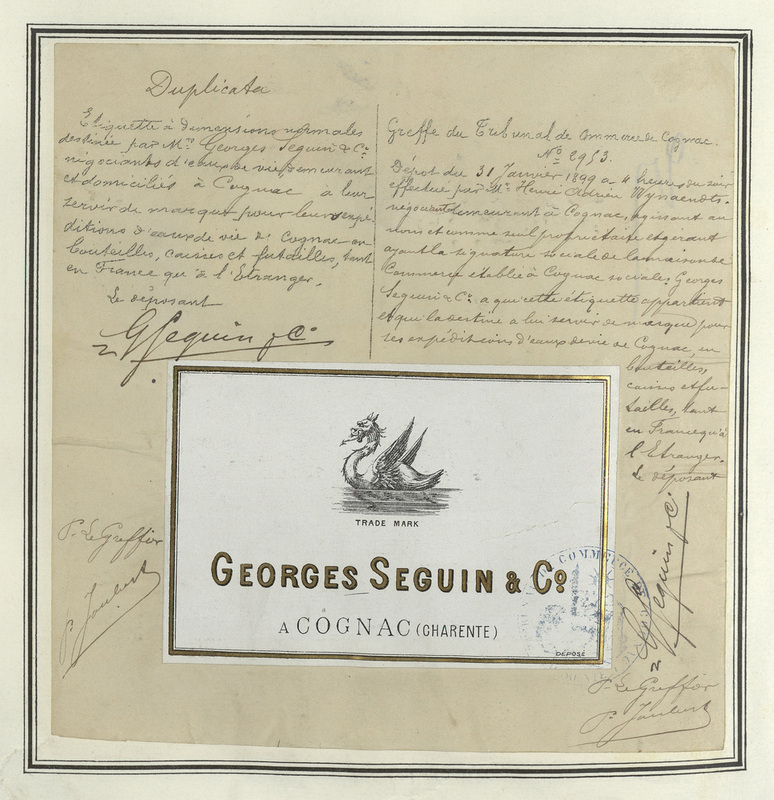 Duplicata
Etiquette à dimensions normales
destinée par Mrs Georges Seguin & Co
négociants d'eaux de vie, demeurant
et domiciliés à Cognac à leur
servir de marque pour leurs expé
ditions d'eaux de vie de Cognac en
bouteilles, caisses et futailles, tant
en France qu'à l'Etranger.
Le déposant
G Seguin & Co
Greffe du Tribunal de Commerce de Cognac.
No 2953.
Dépôt du 31 Janvier 1899 à 4 heures du soir
effectué par Mr Henri Adrien Wynaendts
négociant demeurant à Cognac, agissant au
nom et comme seul propriétaire et gérant
ayant la signature sociale de la maison de
Commerce établie à Cognac sociale Georges
Seguin & Co a qui cette étiquette appartient
et qui la destine a lui servir de marque pour
ses expéditions d'eaux de vie de Cognac, en
bouteilles,
caisses et fu-
tailles, tant
en France qu'à
l'Etranger.
Le déposant
G Seguin & Co
TRADE MARK
GEORGES SEGUIN & Co
A COGNAC (CHARENTE)
DÉPOSÉ
COMMERCE
P. Le Greffier
P. Joubert
P. Le Greffier
P. Joubert